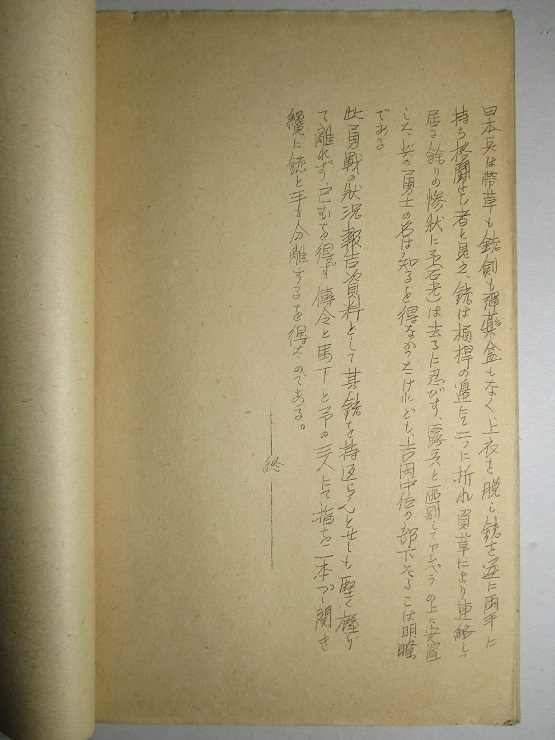 日本兵は帯革も銃剣も弾薬盒もなく上衣を脱し銃を逆に両手に
持ち格闘せし者と見え、銃は槓桿の邊にて二つに折れ負革により連絡し
居る餘りの惨状に予(石光)は去るに忍びず、露兵と区別してアンペラの上に安置
した此の勇士の名は知るを得なかったけれども、吉岡中佐の部下たることは明瞭
である
此勇戦の状況報告資料として其銃を持返らんとせしも堅く握り
て離れず已むを得ず傳令と馬丁と予の三人にて指を一本づつ開き
纔に銃と手を分離するを得たのである。
終